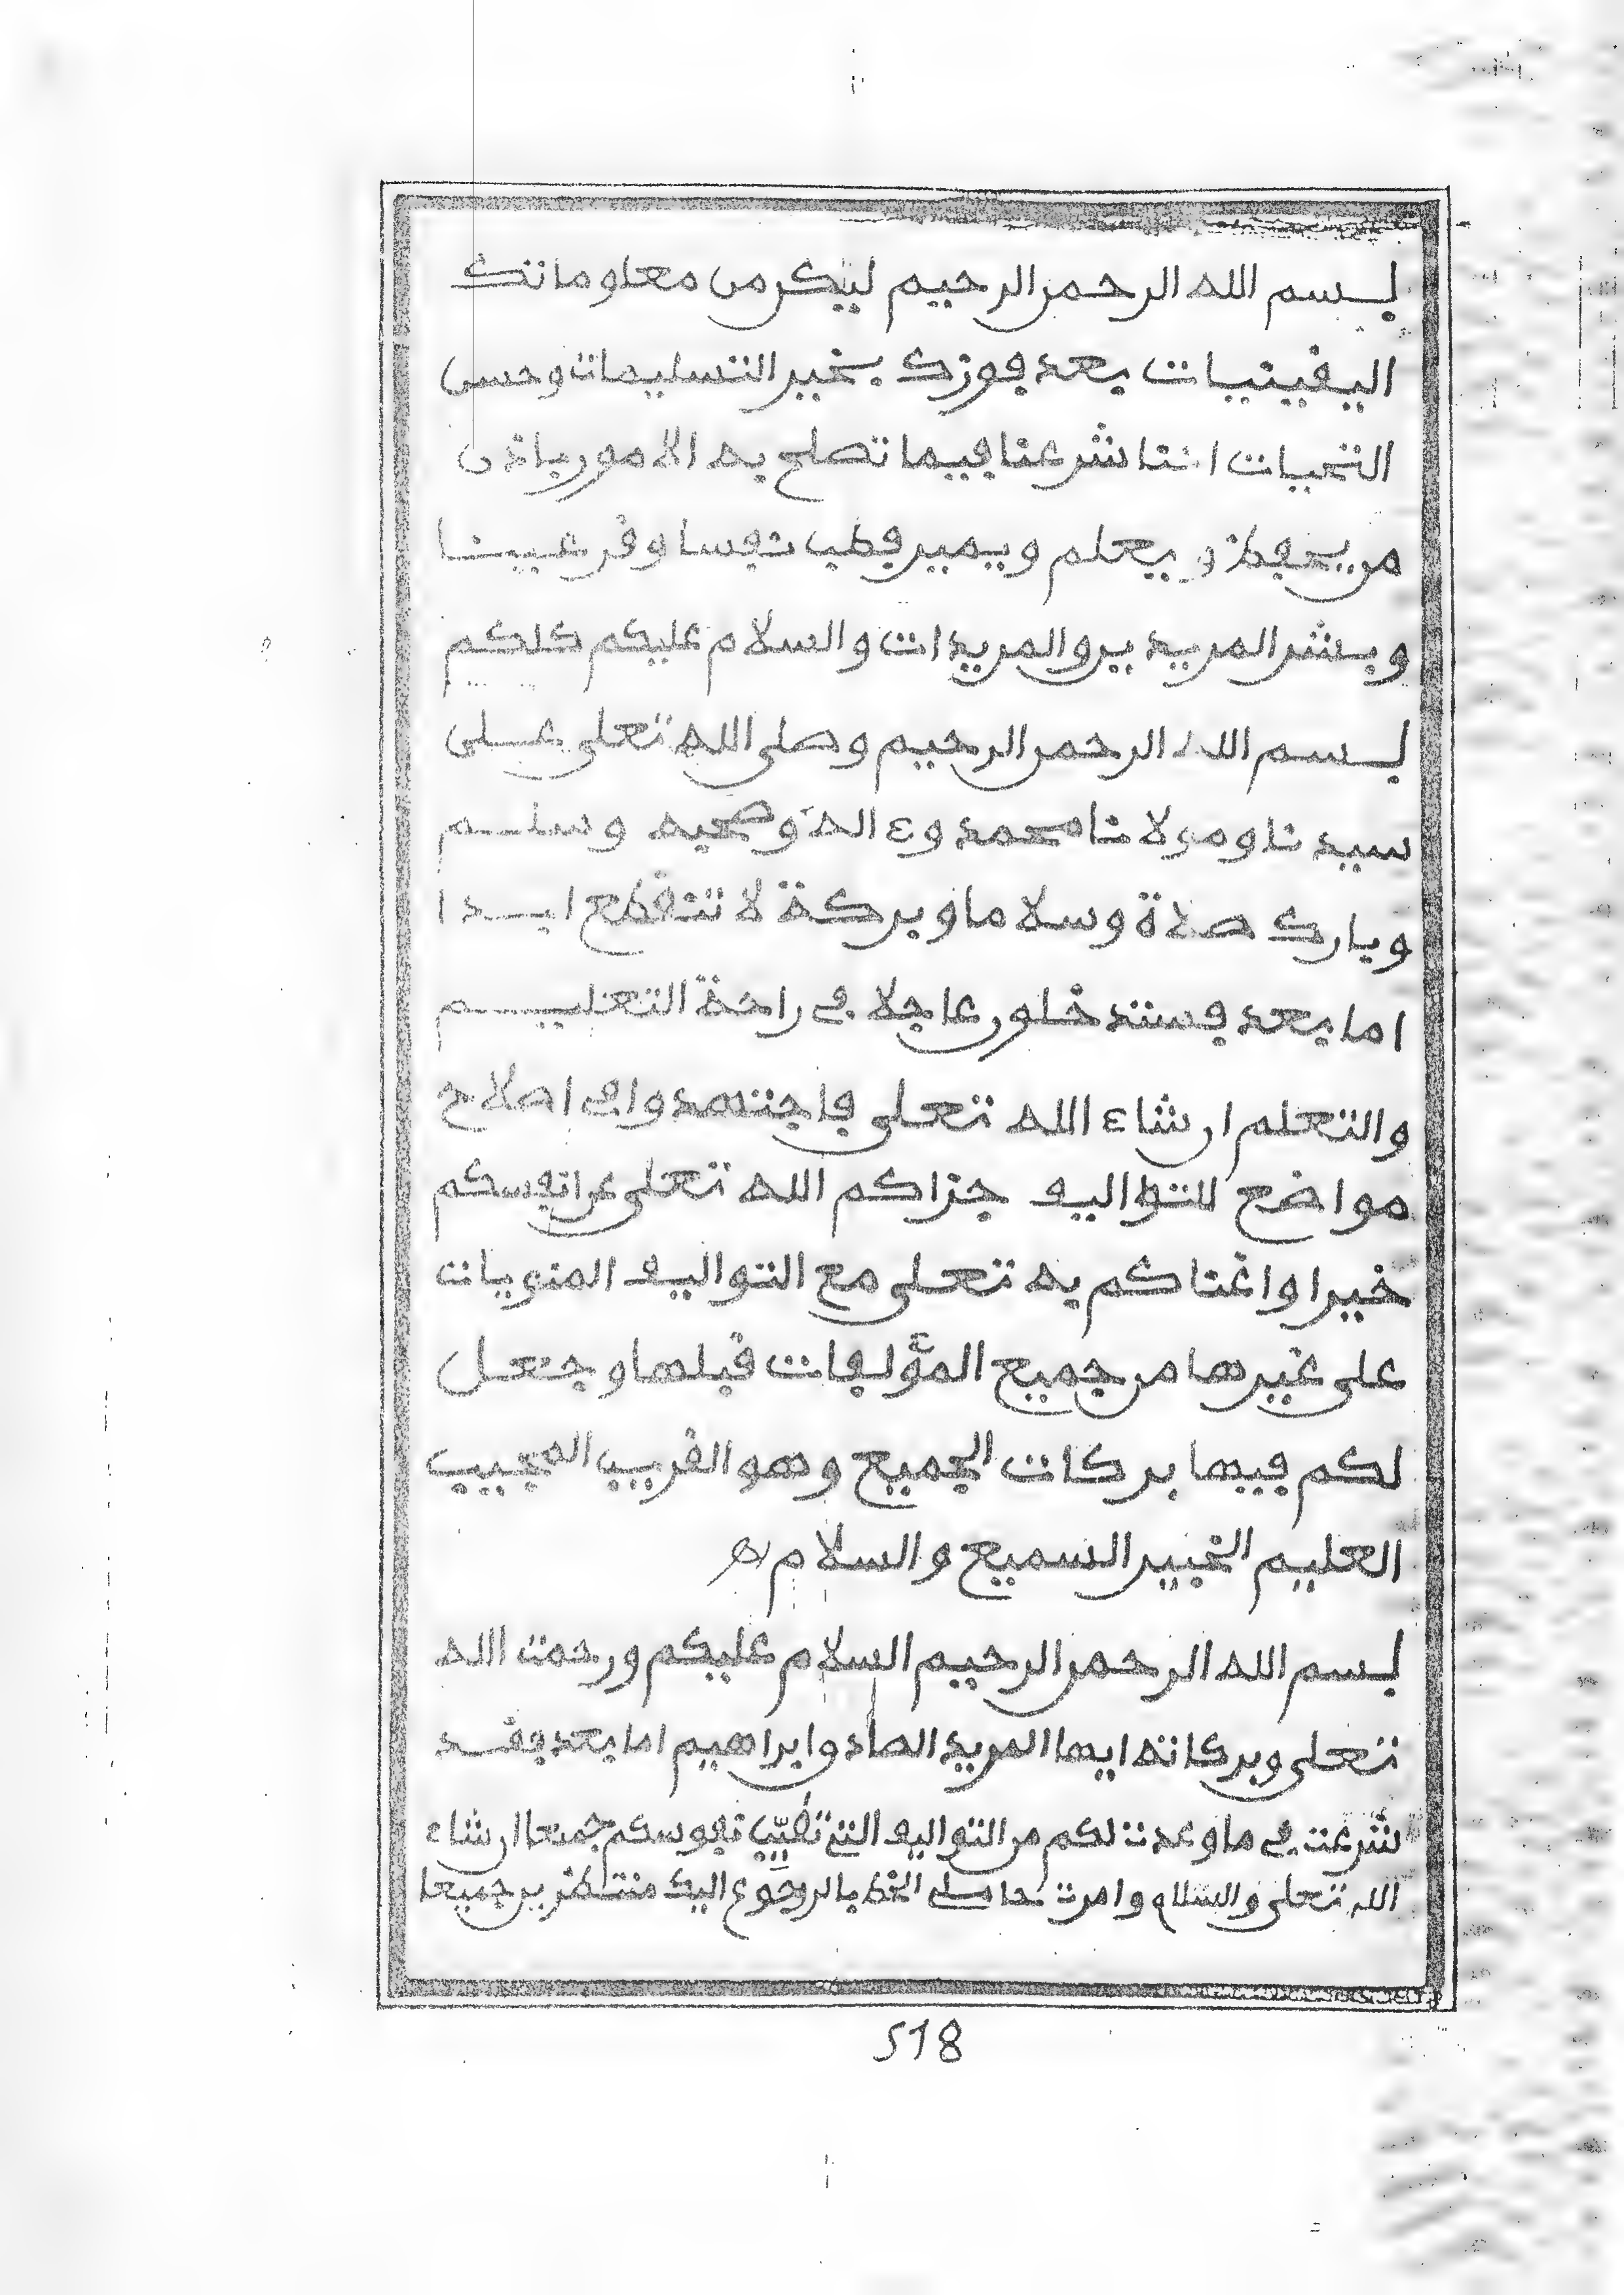 بسم الله الرحمن الرحيم ليكن من معلوماتك
اليقينيات بعد فوزك بخير التسليمات وحسن
التحيات اننا شرعنا فيما تصلح به الامور باذن
من يحفظ ويعلم ويميز فطب نفسا وقر عينا
وبشر المريدين والمريدات والسلام عليكم كلكم
بسم الله الرحمن الرحيم وصلى الله تعلى على
سيدنا ومولانا محمد وءاله وصحبه وسلم
وبارك صلاة وسلاما وبركة لا تنقطع ابدا
اما بعد فستدخلون عاجلا في راحة التعليم
والتعلم ان شاء الله تعلى فاجتهدوا في اصلاح
مواضع للتواليف جزاكم الله تعلى عن انفسكم
خيرا واغناكم به تعلى مع التواليف المنويات
على غيرها من جميع المؤلفات قبلها وجعل
لكم فيها بركات الجميع وهو القريب المجيب
العليم الخبير السميع والسلام اهـ
بسم الله الرحمن الرحيم السلام عليكم ورحمت الله
تعلى وبركاته ايها المريد الصادق ابراهيم اما بعد فقد
شرعت في ما وعدت لكم من التواليف التي تطيّب نفوسكم جميعا ان شاء
الله تعلى والسلام وامرت حاملى الخط بالرجوع اليك منتظرين جميعا
518